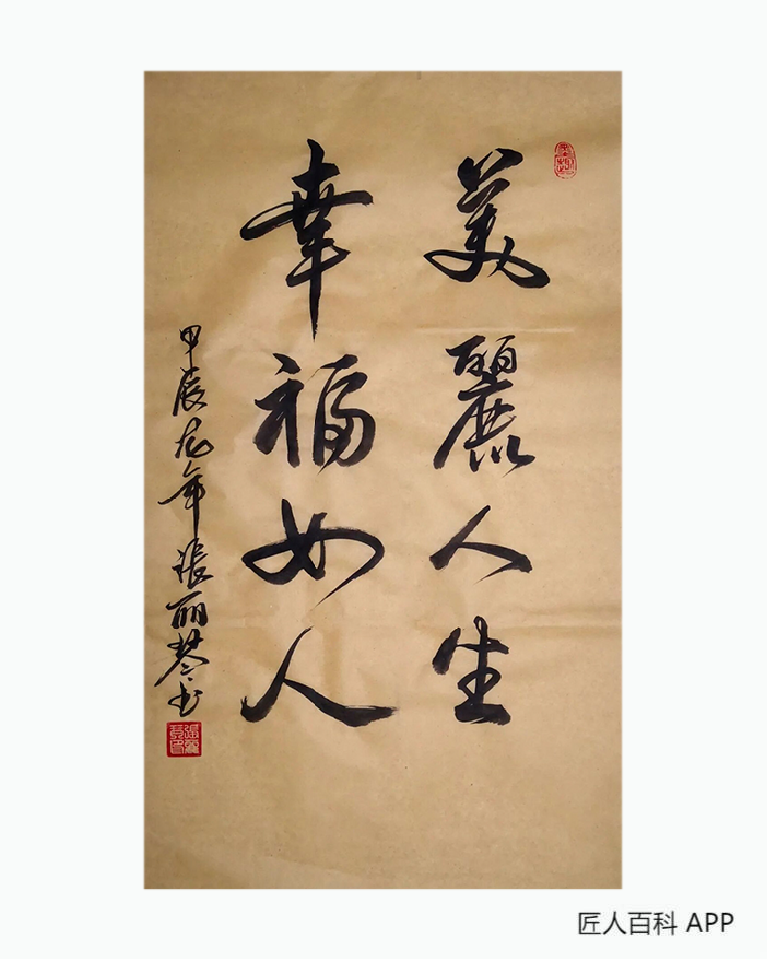 美麗人生
幸福女人
甲辰龙年張丽琴书
匠人百科 APP